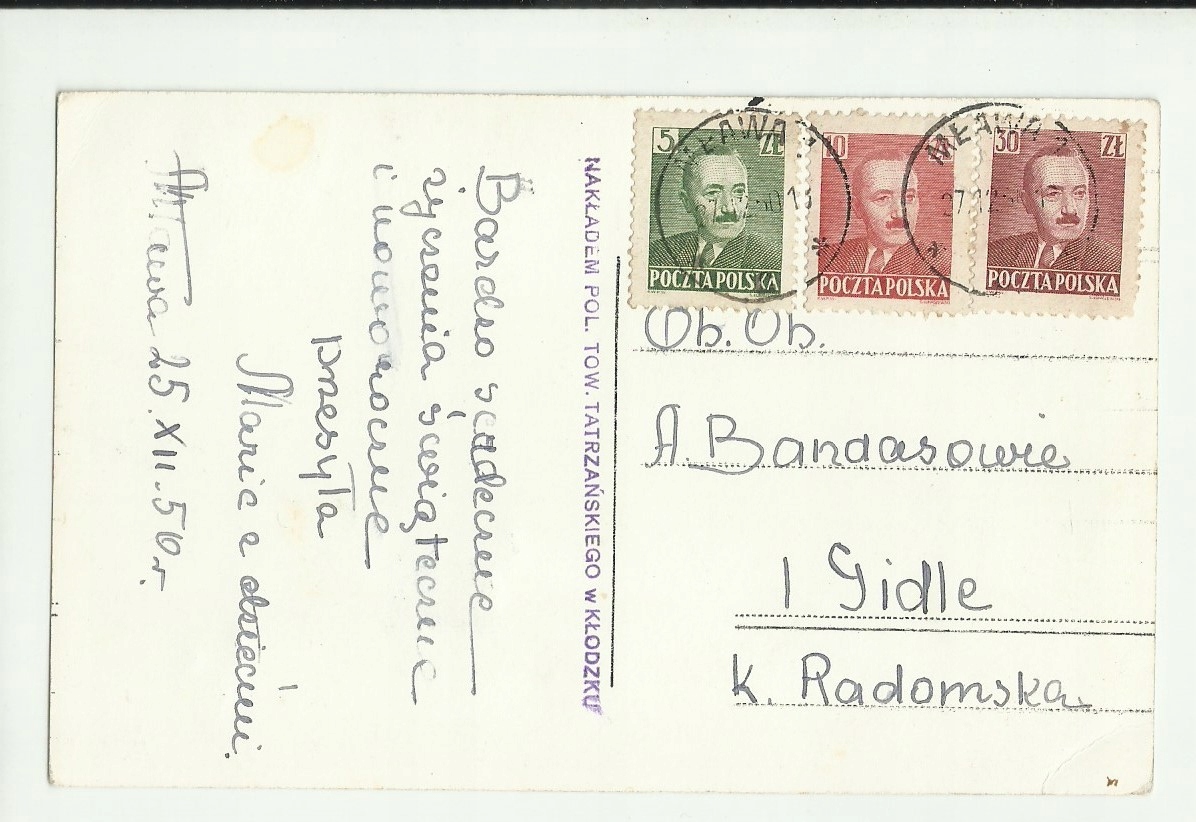 Bardzo serdeczne
życzenia świąteczne
i noworoczne
przesyła
Mania z dziećmi.
Mława 25.XII.50r.
NAKŁADEM POL. TOW. TATRZAŃSKIEGO w KŁODZKU
5 ZŁ
POCZTA POLSKA
10
POCZTA POLSKA
30 ZŁ
POCZTA POLSKA
MŁAWA 1
27.12.50.13
MŁAWA 1
27.12.50
Ob. Ob.
A. Bandasowie
Gidle
k. Radomska